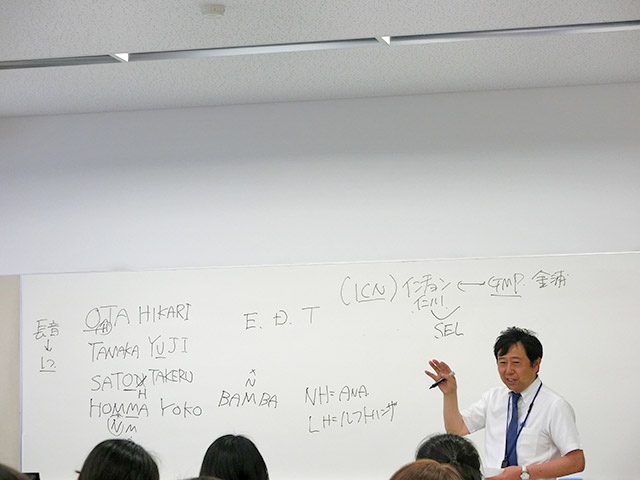 長音
↓
12
OTA HIKARI
TANAKA YUJI
SATOU TAKERU
H
HOMMA YOKO
N M
E. D. T
N
BAMBA
(ICN) インチョン ← GMP. 金浦
仁川
SEL
NH=ANA
LH=ルフトハンザ